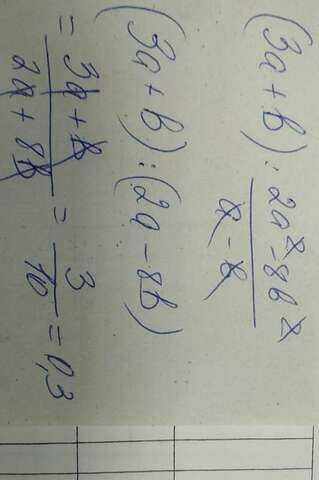 (3a + b) : 2a² - 8b² / a - b
(3a + b) : (2a - 8b)
= 3a + b / 2a + 8b = 3 / 10 = 0,3